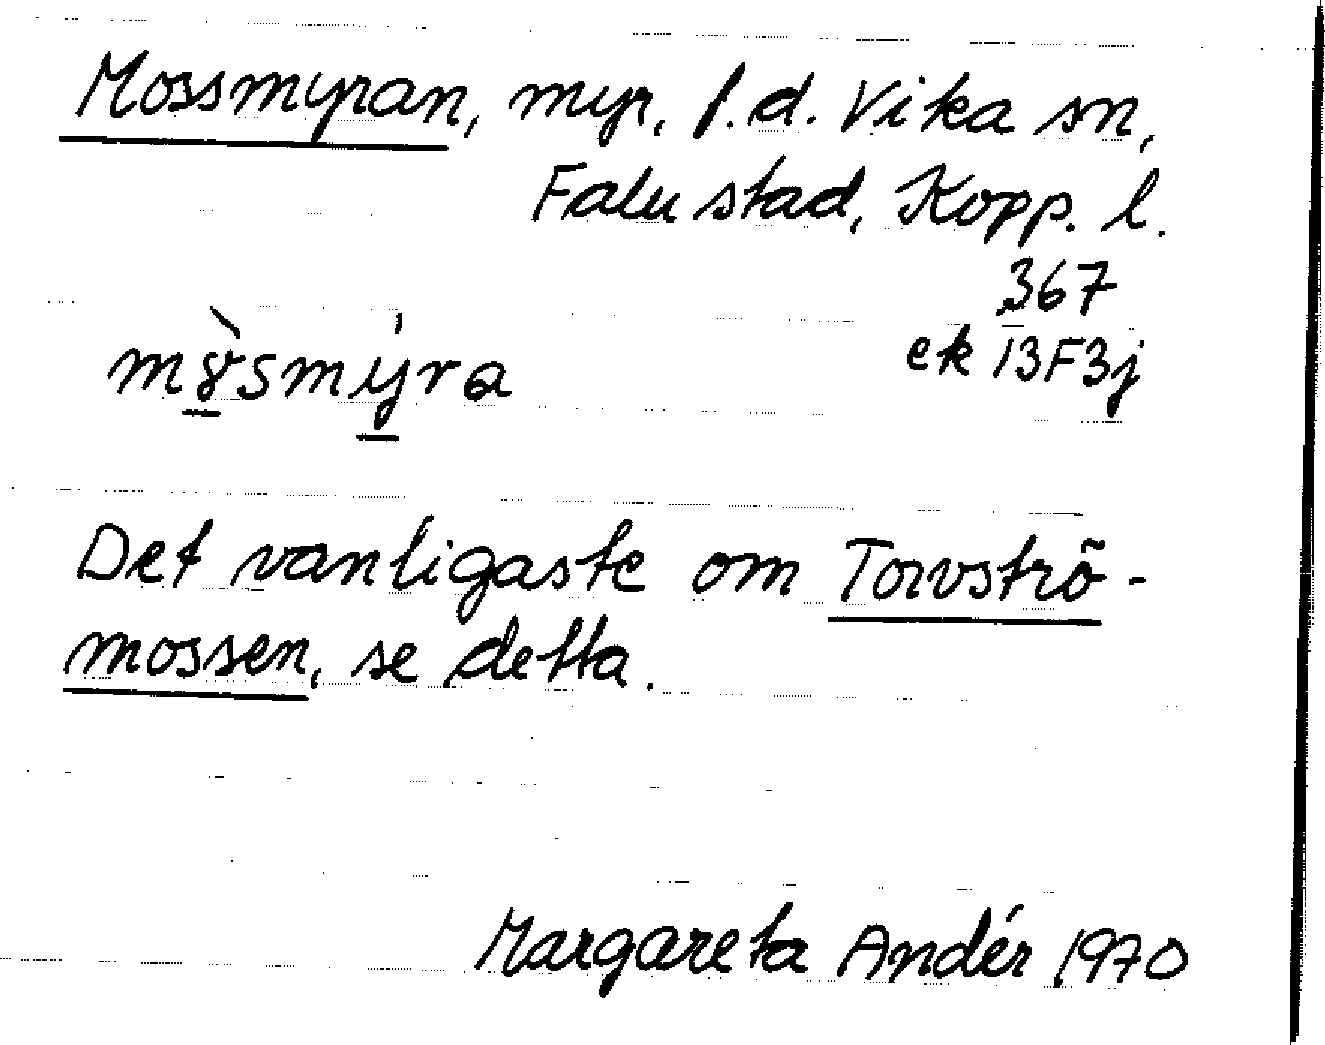 Mossmyran, myr, f.d. Vika sn,
Falu stad, Kopp. l.
367
ek 13F3j
mɤ̀smýra
Det vanligaste om Torvströ-
mossen, se detta.
Margareta Andér 1970